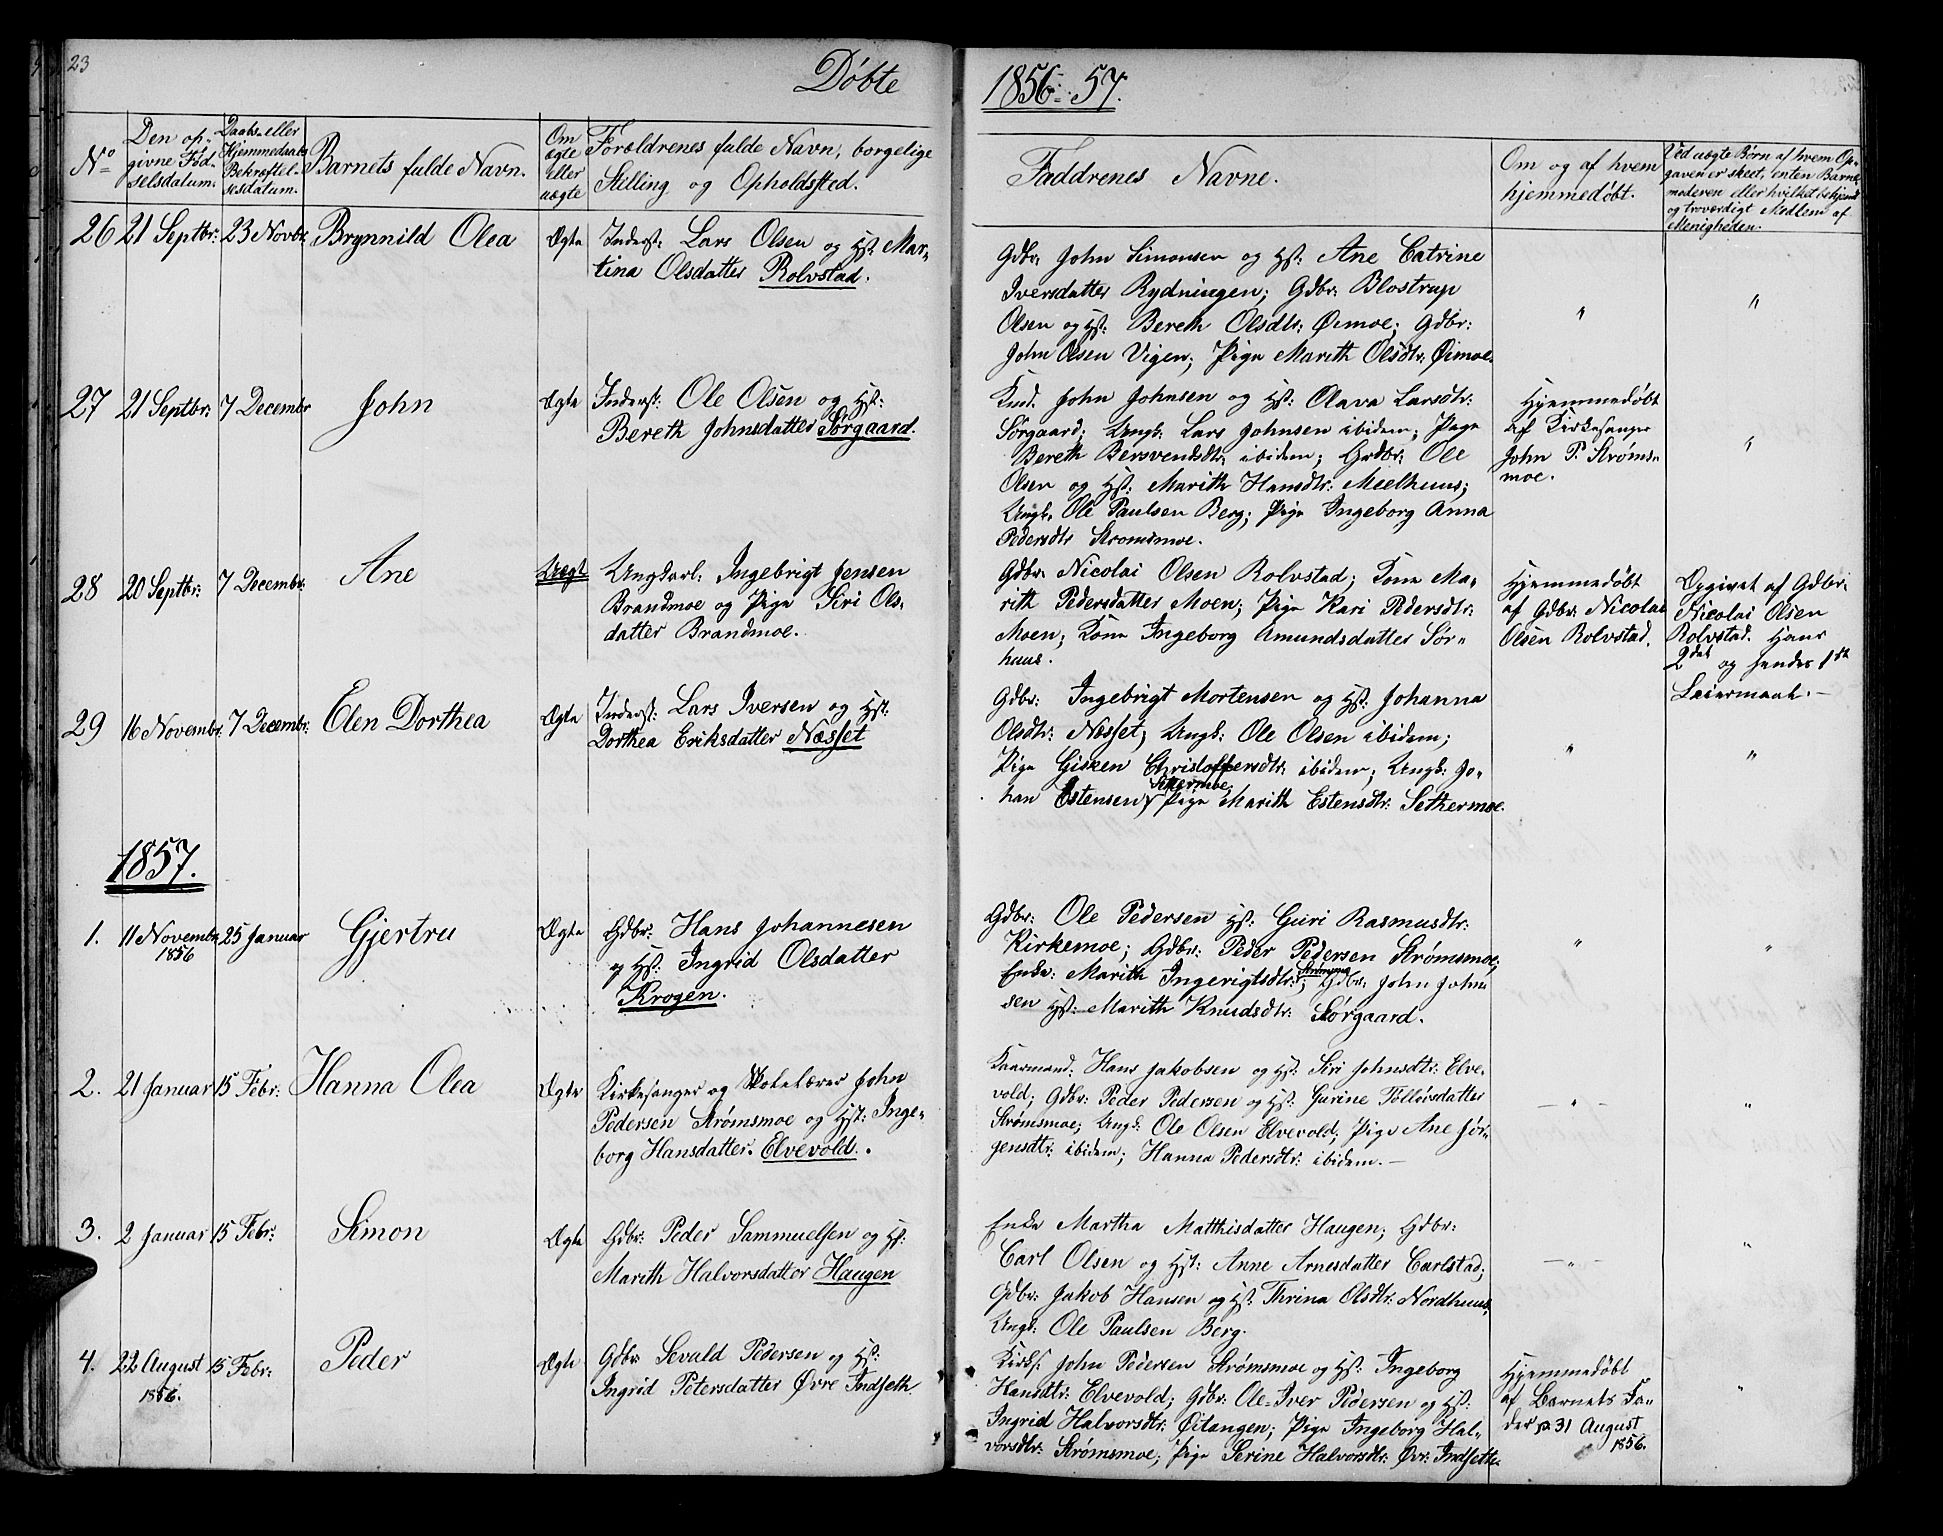 23
Døbte
1856-57.
No
Den op-
givne Fød-
selsdatum.
Daabs- eller
Hjemmedaabs
Bekræftel-
sesdatum.
Barnets fulde Navn.
Om
ægte
eller
uægte
Forældrenes fulde Navn, borgelige
Stilling og Opholdsted.
Faddrenes Navne.
Om og af hvem
hjemmedøbt.
Ved uægte Børn af hvem Op-
gaven er skeet, enten Barne-
moderen eller hvilket bekjendt
og troværdigt Medlem af
Menigheden.
26 21 Septbr: 23 Novbr. Brynnild Olea Ægte Inderst: Lars Olsen og Hst: Mar-
tina Olsdatter Rolvstad.
Gdbr. John Simonsen og Hst: Ane Catrine
Iversdatter Rydningen; Gdbr: Blostrup
Olsen og Hst: Bereth Olsdtr: Øimoe; Gdbr:
John Olsen Vigen; Pige Marith Olsdtr: Øimoe.
"
"
27 21 Septbr: 7 Decembr John Ægte Inderst: Ole Olsen og Hst:
Bereth Johnsdatter Sørgaard.
John Johnsen og Hst: Olava Larsdtr:
Sørgaard; Ungk: Lars Johnsen ibidem; Pige
Bereth Bersvendsdtr: ibidem; Gdbr: Ole
Olsen og Hst: Marith Hansdtr: Meelhuus;
Ungk. Ole Paulsen Berg; Pige Ingeborg Anna
Pedersdtr Strømsmoe.
Hjemmedøbt
af Kirkesanger
John P. Strøms-
moe.
"
28 20 Septbr: 7 Decembr: Ane Uægt Ungkarl: Ingebrigt Jensen
Brandmoe og Pige Siri Ols-
datter Brandmoe.
Gdbr. Nicolai Olsen Rolvstad; Kone Ma-
rith Pedersdatter Moen; Pige Kari Pedersdtr:
Moen; Kone Ingeborg Amundsdatter Sør-
huus.
Hjemmedøbt
af Gdbr: Nicolai
Olsen Rolvstad.
Opgivet af Gdbr.
Nicolai Olsen
Rolvstad. Hans
2det og hendes 1ste
Leiermaal.
29 16 Novembr: 7 Decembr: Elen Dorthea Ægte Inderst: Lars Iversen og Hst:
Dorthea Eriksdatter Næsset
Gdbr: Ingebrigt Mortensen og Hst: Johanna
Olsdtr: Næsset; Ungk: Ole Olsen ibidem;
Pige Gisken Christoffersdtr: ibidem; Ungk: Jo-
han Estensen Sethermoe, Pige Marith Estensdtr: Sethermoe.
"
"
1857.
1. 11 Novembr 1856 25 Januar Gjertru Ægte Gdbr: Hans Johannesen
og Hst: Ingrid Olsdatter
Krogen.
Gdbr: Ole Pedersen Hst: Guri Rasmusdtr:
Kirkemoe; Gdbr: Peder Pedersen Strømsmoe;
Enke: Marith Ingerigtsdtr: Gdbr: John John
sen Hst: Marith Knudsdtr: Sørgaard.
"
"
2. 21 Januar 15 Febr: Hanna Olea Ægte Kirkesanger og Skolelærer John
Pedersen Strømsmoe og Hst: Inge-
borg Hansdatter. Elvevold.
Kaarmand: Hans Jakobsen og Hst: Siri Johnsdtr: Elve-
vold; Gdbr: Peder Pedersen og Hst: Gurine Tollevsdatter
Strømsmoe; Ungk: Ole Olsen Elvevold; Pige Ane Jør-
gensdtr: ibidem; Hanna Pedersdtr: ibidem.
"
"
3. 2 Januar 15 Febr: Simon Ægte Gdbr: Peder Sammuelsen og Hst:
Marith Halvorsdatter Haugen
Enke Martha Matthisdatter Haugen; Gdbr:
Carl Olsen og Hst: Anne Arnesdatter Carlstad;
Gdbr: Jakob Hansen og Hst: Thrina Olsdtr: Nordhuus,
Ungk: Ole Paulsen Berg.
"
"
4. 22 August 1856. 15 Febr: Peder Ægte Gdbr Sevald Pedersen og Hst:
Ingrid Petersdatter Øvre Indseth.
Kirks: John Pedersen Strømsmoe og Hst: Ingeborg
Hansdtr: Elvevold; Gdbr: Ole-Iver Pedersen og Hst:
Ingrid Halvorsdtr: Øitangen; Pige Ingeborg Hal-
vorsdtr: Strømsmoe; Pige Serine Halvorsdtr: Øvr: Indseth.
Hjemmedøbt
af Barnets Fa-
der 31 August
1856.
"